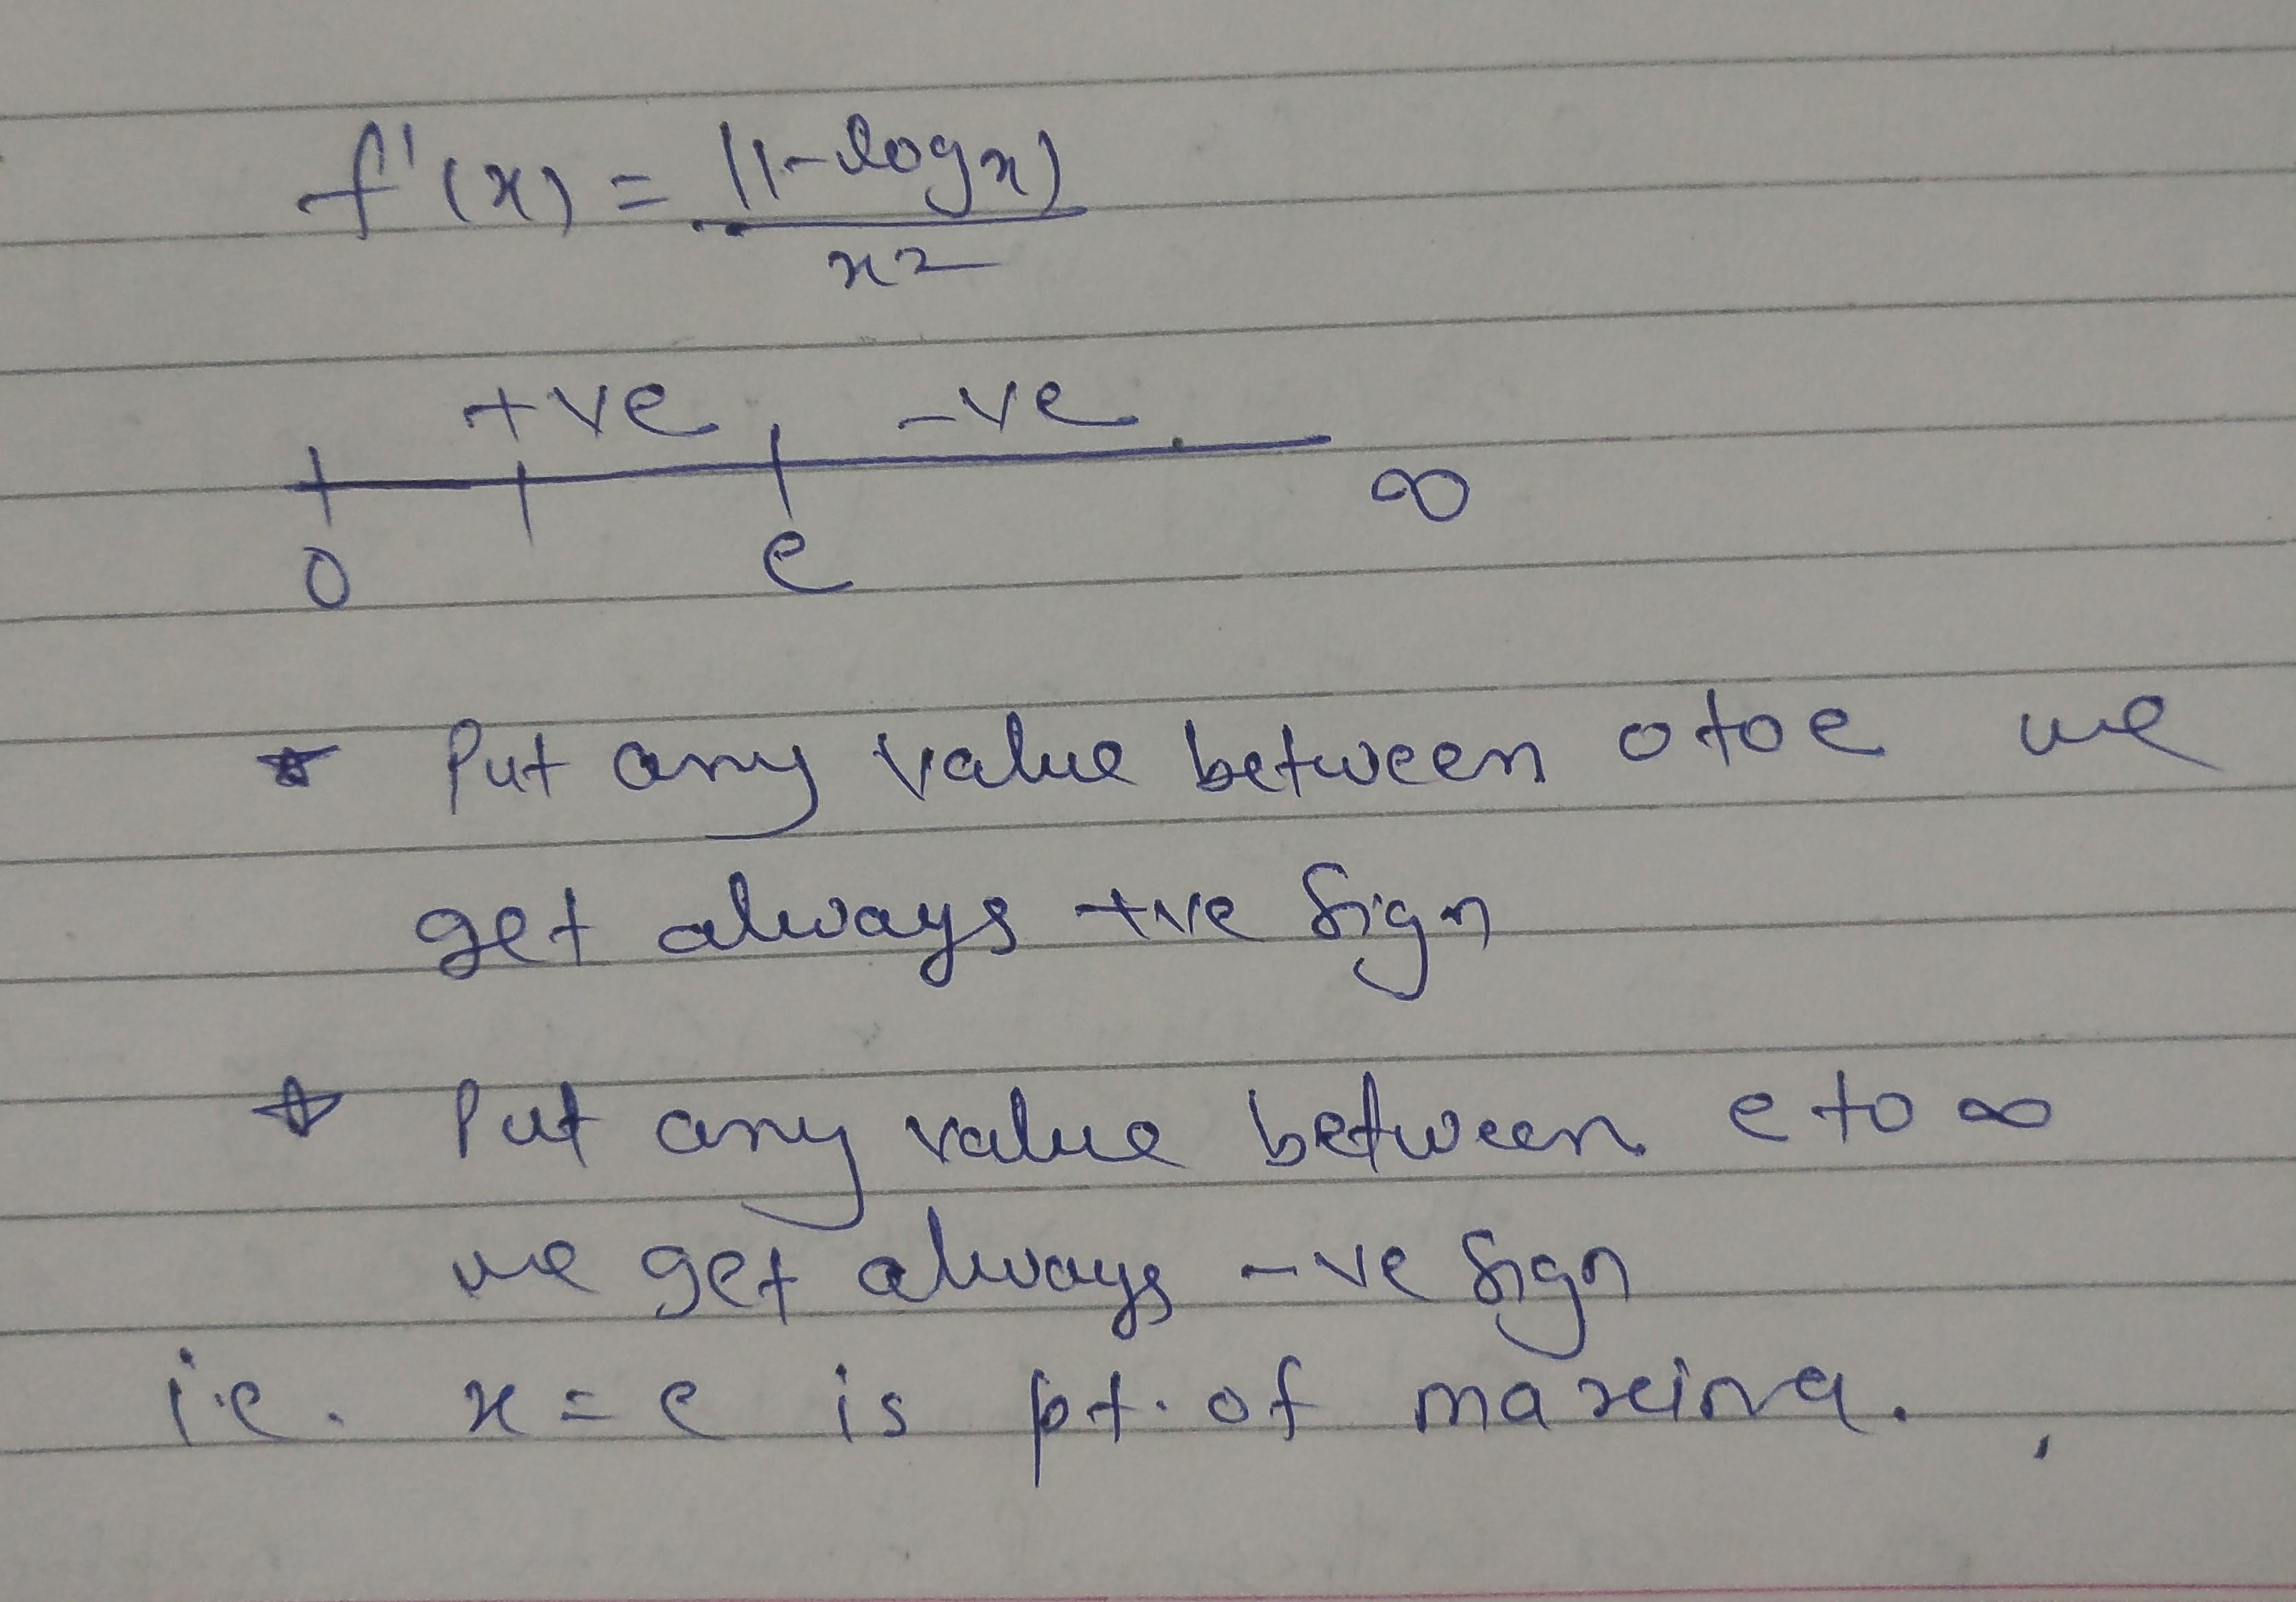 f'(x) = (1-logx)
x2
+ve -ve
0 e ∞
* Put any value between 0 to e we
get always +ve sign
* Put any value between e to ∞
we get always -ve sign
i.e. x = e is pt. of maxima.